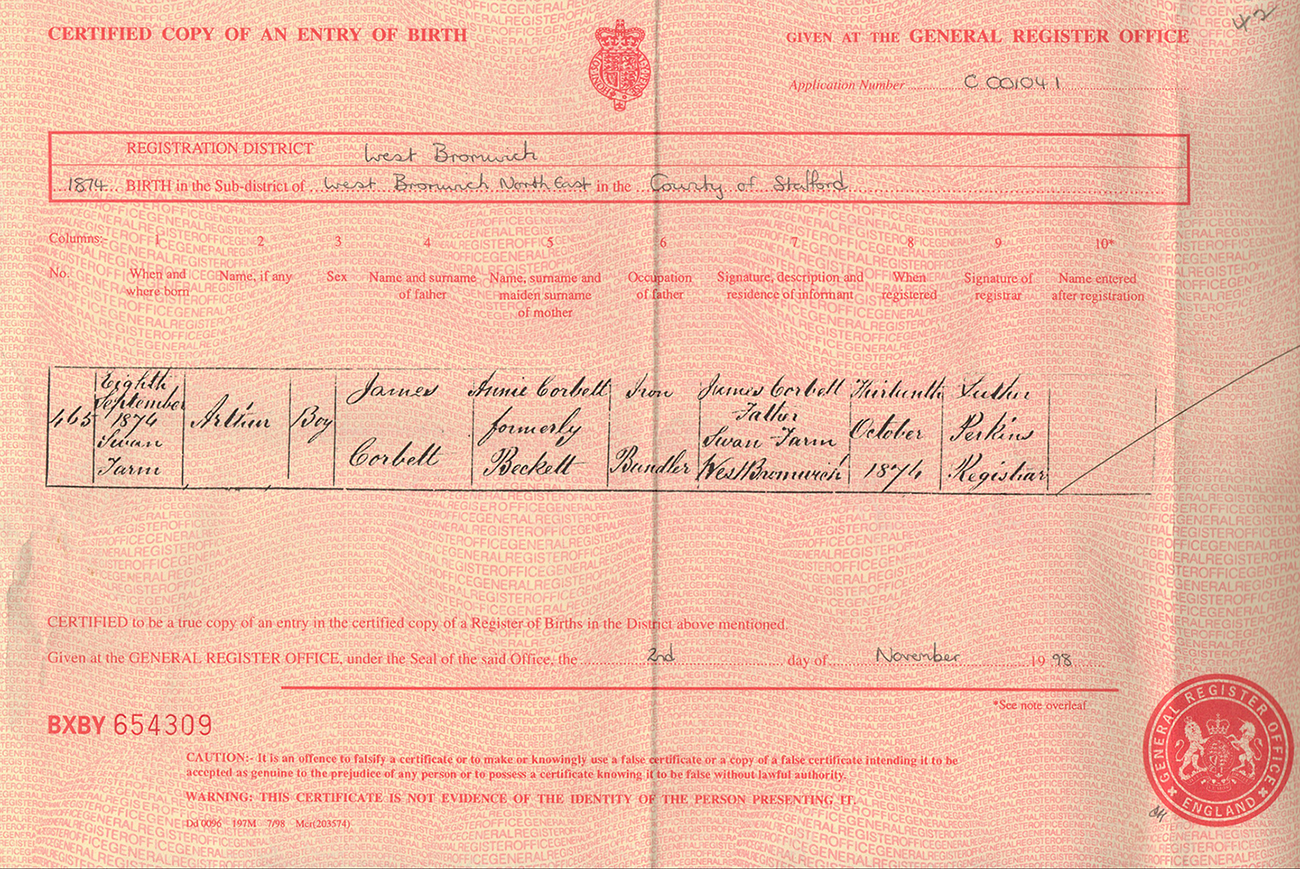 42
CERTIFIED COPY OF AN ENTRY OF BIRTH
GIVEN AT THE GENERAL REGISTER OFFICE
Application Number C 001041
REGISTRATION DISTRICT West Bromwich
1874 BIRTH in the Sub-district of West Bromwich North East in the County of Stafford
Columns:- 1 2 3 4 5 6 7 8 9 10*
No. When and where born Name, if any Sex Name and surname of father Name, surname and maiden surname of mother Occupation of father Signature, description and residence of informant When registered Signature of registrar Name entered after registration
465 Eighth September 1874 Swan Farm Arthur Boy James Corbett Annie Corbett formerly Beckett Iron Bundler James Corbett Father Swan Farm West Bromwich Thirteenth October 1874 Luther Perkins Registrar
CERTIFIED to be a true copy of an entry in the certified copy of a Register of Births in the District above mentioned.
Given at the GENERAL REGISTER OFFICE, under the Seal of the said Office, the 2nd day of November 19 98
*See note overleaf
BXBY 654309
CAUTION:- It is an offence to falsify a certificate or to make or knowingly use a false certificate or a copy of a false certificate intending it to be
accepted as genuine to the prejudice of any person or to possess a certificate knowing it to be false without lawful authority.
WARNING: THIS CERTIFICATE IS NOT EVIDENCE OF THE IDENTITY OF THE PERSON PRESENTING IT.
Dd 0096 197M 7/98 Mcr(203574)
GENERAL REGISTER OFFICE
ENGLAND